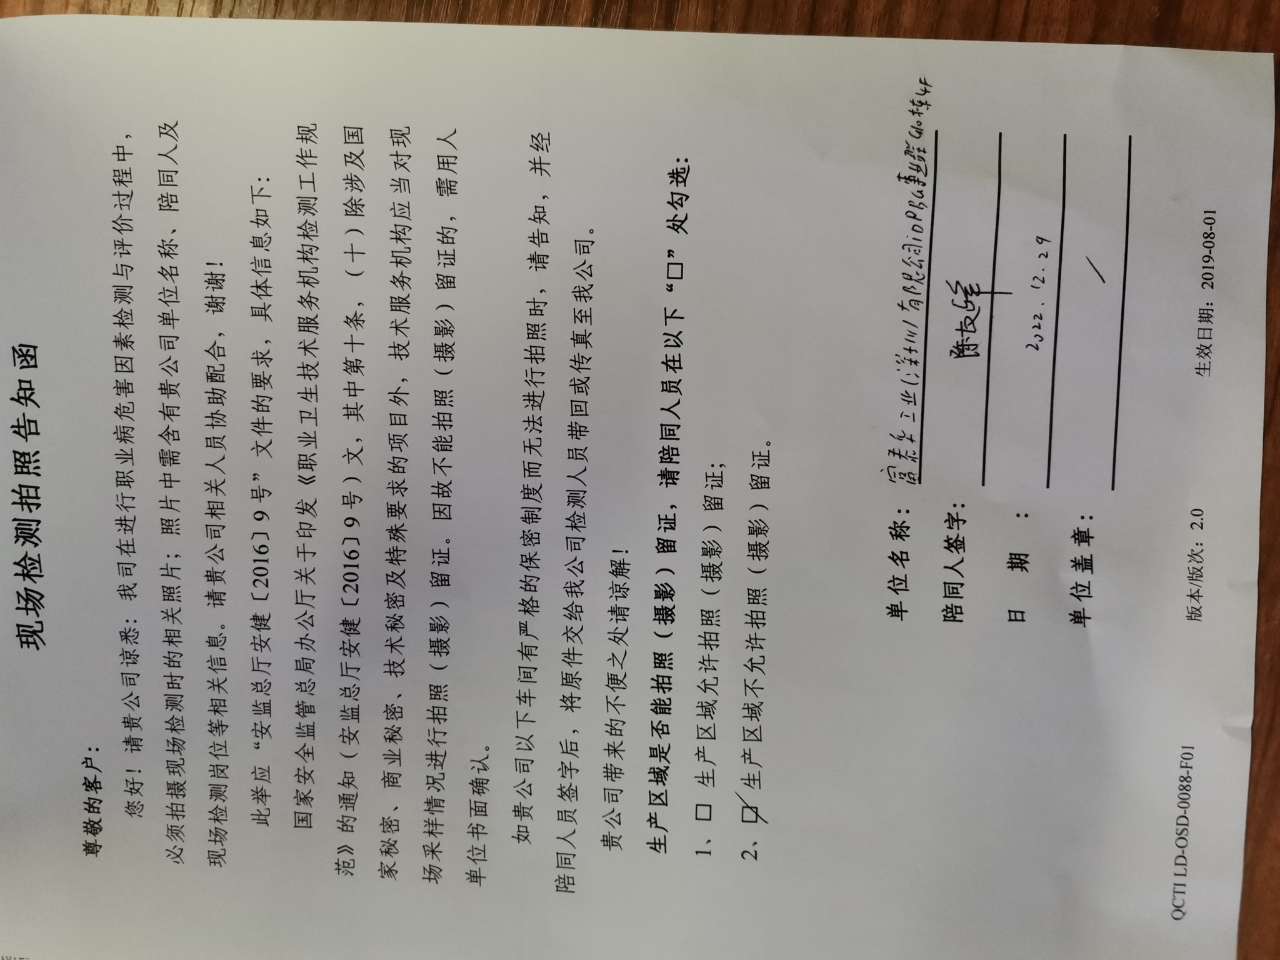 现场检测拍照告知函
尊敬的客户：
您好！请贵公司谅悉：我司在进行职业病危害因素检测与评价过程中，
必须拍摄现场检测时的相关照片；照片中需含有贵公司单位名称、陪同人及
现场检测岗位等相关信息。请贵公司相关人员协助配合，谢谢！
此举应“安监总厅安健〔2016〕9号”文件的要求，具体信息如下：
国家安全监管总局办公厅关于印发《职业卫生技术服务机构检测工作规
范》的通知（安监总厅安健〔2016〕9号）文，其中第十条，（十）除涉及国
家秘密、商业秘密、技术秘密及特殊要求的项目外，技术服务机构应当对现
场采样情况进行拍照（摄影）留证。因故不能拍照（摄影）留证的，需用人
单位书面确认。
如贵公司以下车间有严格的保密制度而无法进行拍照时，请告知，并经
陪同人员签字后，将原件交给我公司检测人员带回或传真至我公司。
贵公司带来的不便之处请谅解！
生产区域是否能拍照（摄影）留证，请陪同人员在以下“□”处勾选：
1、□ 生产区域允许拍照（摄影）留证；
2、☑ 生产区域不允许拍照（摄影）留证。
单位名称：富泰华工业(深圳)有限公司iDPBG事业群G10栋4F
陪同人签字：陈
日期：2022.12.29
单位盖章：/
QCTI LD-OSD-0088-F01 版本/版次：2.0 生效日期：2019-08-01